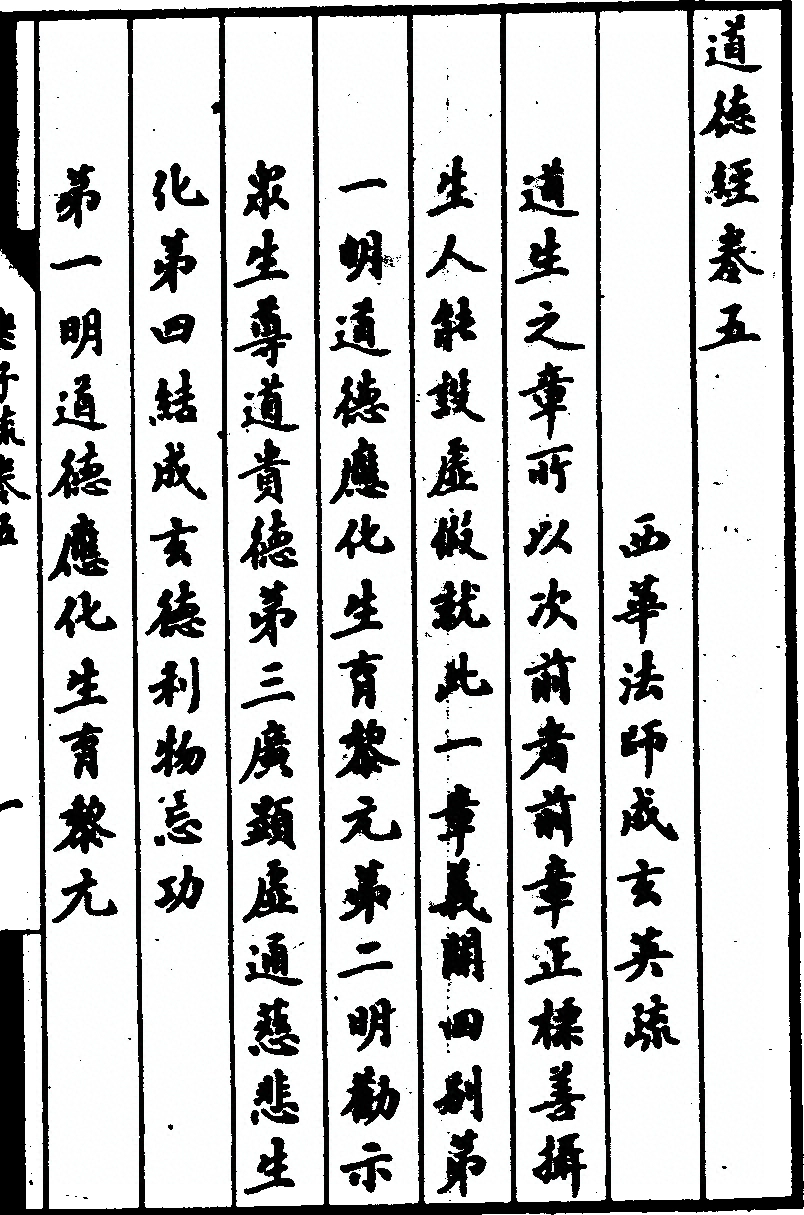 道德經卷五
西華法師成玄英疏
道生之章所以次前者前章正標善攝
生人能設虛假就此一章義開四別第
一明道德應化生育黎元第二明勸示
衆生尊道貴德第三廣顯虛通慈悲生
化第四結成玄德利物忘功
第一明道德應化生育黎元
子疏卷五
一